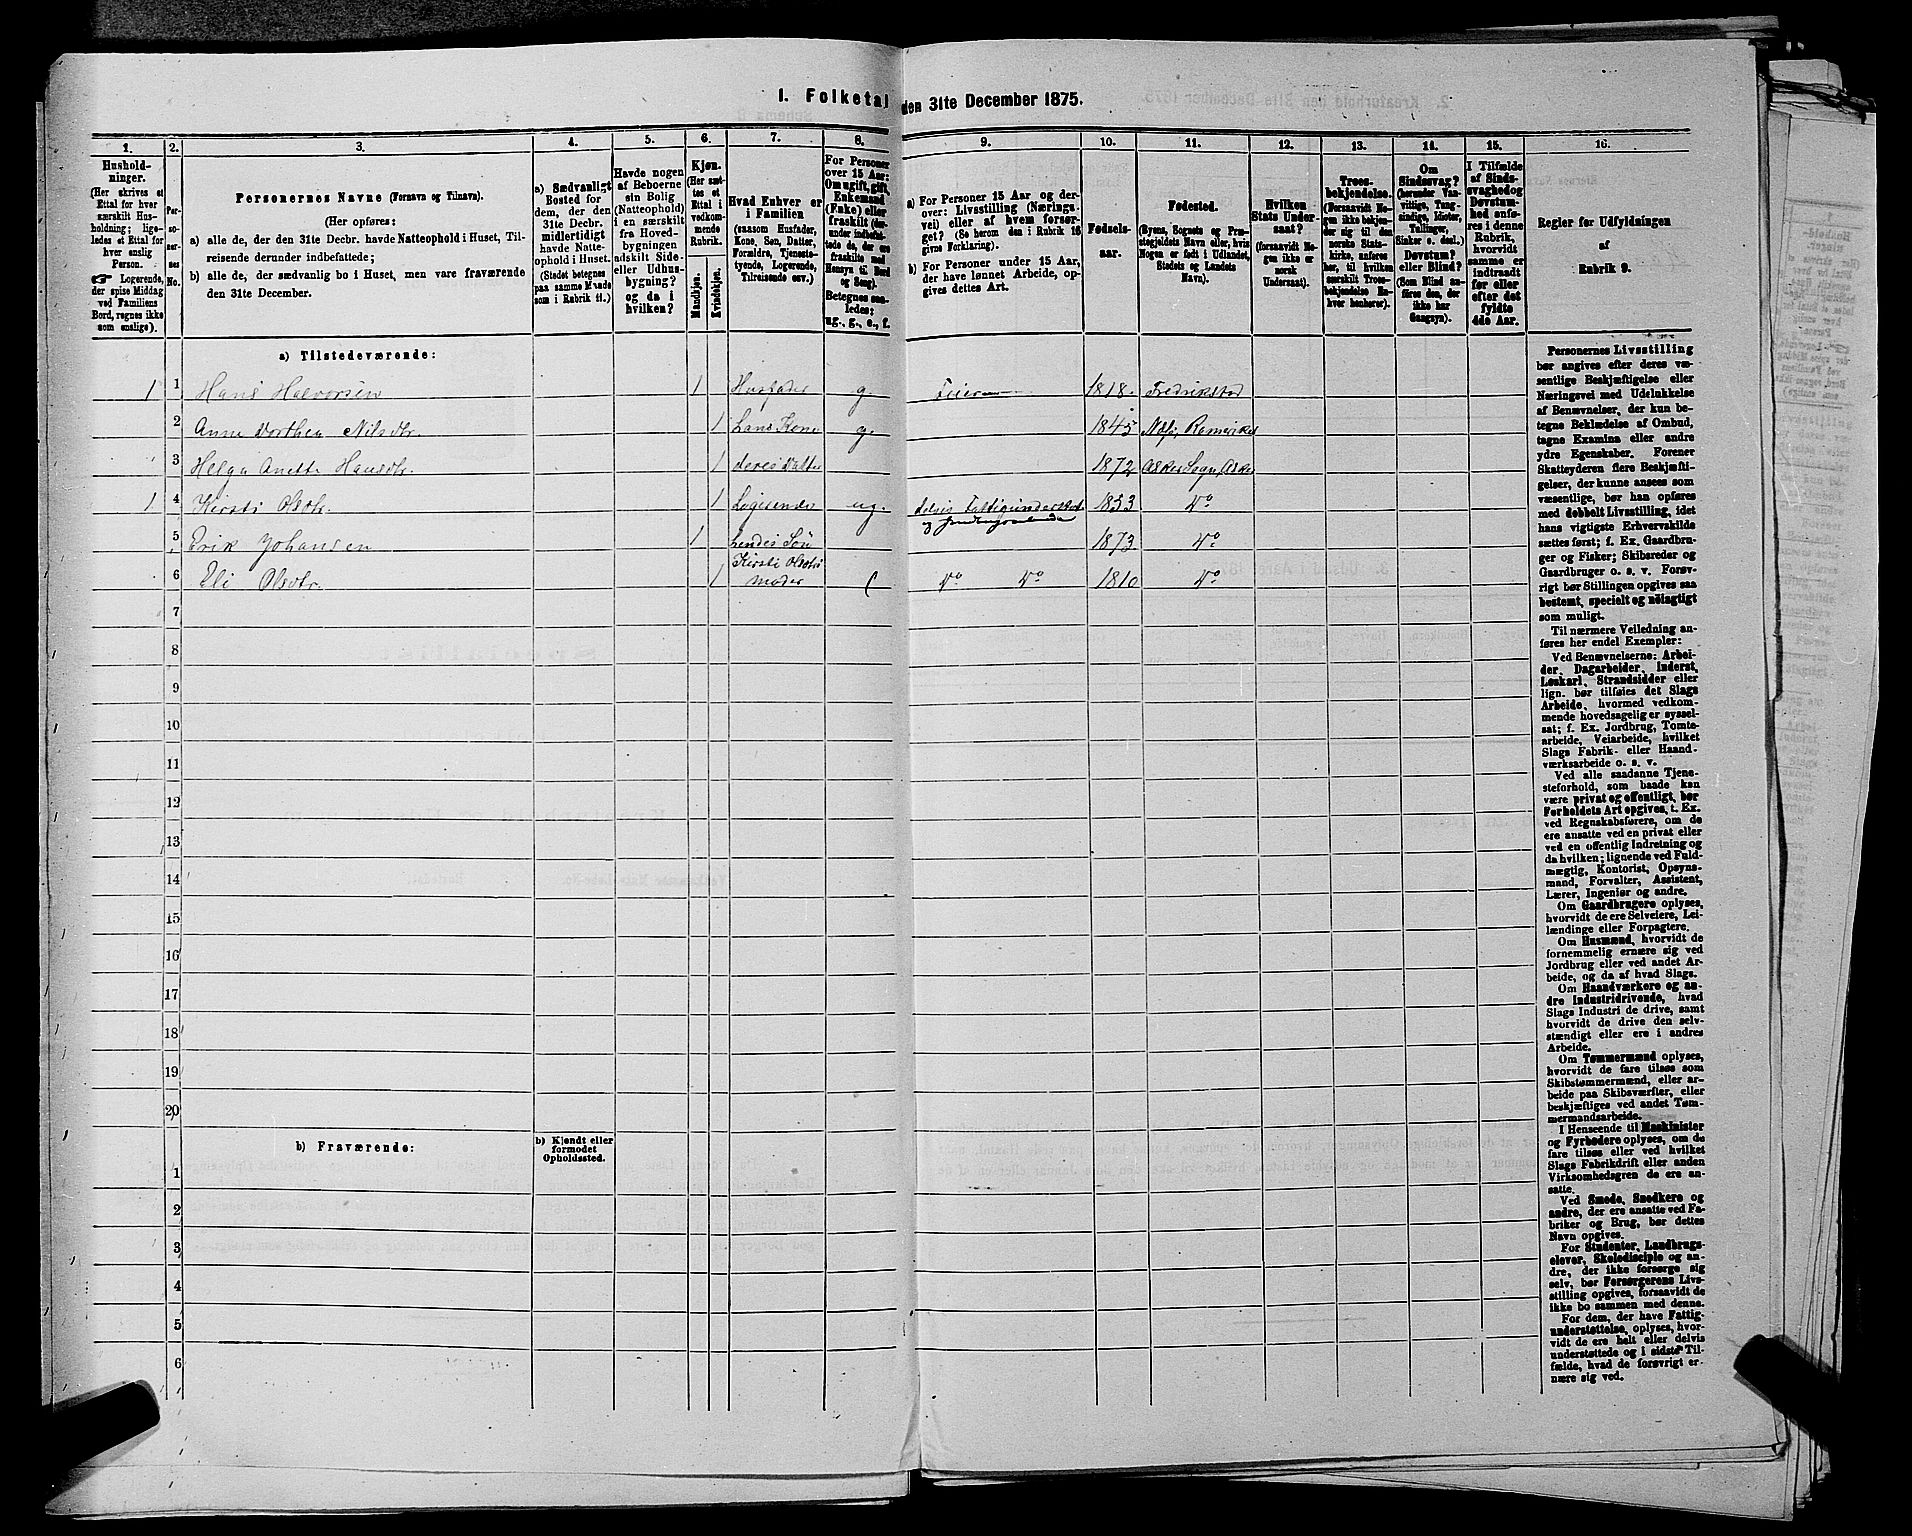 1. Folketal den 31te December 1875.
1. 2. 3. 4. 5. 6. 7. 8. 9. 10. 11. 12. 13. 14. 15. 16.
Hushold-
ninger.
(Her skrives et
Ettal for hver
særskilt Hus-
holdning; lige-
ledes et Ettal for
hver enslig
Person.
☞ Logerende,
der spise Middag
ved Familiens
Bord, regnes ikke
som enslige).
Per-
so-
ner-
nes
No.
Personernes Navne (Fornavn og Tilnavn).
(Her opføres:
a) alle de, der den 31te Decbr. havde Natteophold i Huset, Til-
reisende derunder indbefattede;
b) alle de, der sædvanlig bo i Huset, men vare fraværende
den 31te December.
a) Sædvanligt
Bosted for
dem, der den
31te Decbr.
midlertidigt
havde Natte-
ophold i Huset.
(Stedet betegnes
paa samme Maade
som i Rubrik 11.)
Havde nogen
af Beboerne
sin Bolig
(Natteophold)
i en særskilt
fra Hoved-
bygningen
adskilt Side-
eller Udhus-
bygning?
og da i
hvilken?
Kjøn.
(Her sæt-
tes et
Ettal i
vedkom-
mende
Rubrik.
Mandkjøn.
Kvindekjøn.
Hvad Enhver er
i Familien
(saasom Husfader,
Kone, Søn, Datter,
Forældre, Tjeneste-
tyende, Logerende,
Tilreisende osv.)
For Personer
over 15 Aar:
Om ugift, gift,
Enkemand
(Enke) eller
fraskilt (der-
under indbefat-
tede de, der ere
fraskilte med
Hensyn til Bord
og Seng).
Betegnes saa-
ledes:
ug., g., e., f.
a) For Personer 15 Aar og der-
over: Livsstilling (Nærings-
vei) eller af hvem forsør-
get? (Se herom den i Rubrik 16
givne Forklaring).
b) For Personer under 15 Aar,
der have lønnet Arbeide, op-
gives dettes Art.
Fødsels-
aar.
Fødested.
(Byens, Sognets og Præ-
stegjeldets Navn eller, hvis
Nogen er født i Udlandet,
Stedets og Landets
Navn).
Hvilken
Stats Under-
saat?
(forsaavidt No-
gen ikke er
norsk
Undersaat).
Troes-
bekjendelse.
(Forsaavidt No-
gen ikke bekjen-
der sig til den
norske Stats-
kirke, anføres
her, til hvilken
særskilt Troes-
bekjendelse En-
hver henhører).
Om
Sindssvag?
(herunder Van-
vittige, Tung-
sindige, Idioter,
Tullinger,
Sinker o. desl.)
Døvstum?
eller Blind?
(Som Blind an-
føres den, der
ikke har
Gangsyn).
I Tilfælde
af Sinds-
svaghed og
Døvstum-
hed anfø-
res i denne
Rubrik,
hvorvidt
samme er
indtraadt
før eller
efter det
fyldte
4de Aar.
Regler før Udfyldningen
af
Rubrik 9.
a) Tilstedeværende:
1 1 Hans Halvorsen 1 Husfader g. Feier 1818 Fredrikstad
2 Anne Dorthea Nilsdtr. 1 hans Kone g. 1845
3 Helga Anette Hansdtr. 1 deres Datter 1872 Asker Sogn, Asker
1 4 Kirsti Olsdtr. 1 Logerende ug. delvis Fattigunderst. 1833 Do
5 Erik Johansen 1 hendes Søn 1873 Do
6 Eli Olsdtr. 1 Kirsti Olsdtrs Moder Do Do 1810 Do
7
8
9
10
11
12
13
14
15
16
17
18
19
20
b) Fraværende:
b) Kjendt eller
formodet
Opholdssted.
1
2
3
4
5
6
Personernes Livsstilling
bør angives efter deres væ-
sentlige Beskjæftigelse eller
Næringsvei med Udelukkelse
af Benævnelser, der kun be-
tegne Beklædelse af Ombud,
tagne Examina eller andre
ydre Egenskaber. Forener
Skatteyderen flere Beskjæfti-
gelser, der kunne ansees som
væsentlige, bør han opføres
med dobbelt Livsstilling, idet
hans vigtigste Erhvervskilde
sættes først; f. Ex. Gaardbru-
ger og Fisker; Skibsreder og
Gaardbruger o. s. v. Forøv-
rigt bør Stillingen opgives saa
bestemt, specielt og nøiagtigt
som muligt.
Til nærmere Veiledning an-
føres her endel Exempler:
Ved Benævnelserne: Arbei-
der, Dagarbeider, Inderst,
Løskarl, Strandsidder eller
lign. bør tilføies det Slags
Arbeide, hvormed vedkom-
mende hovedsagelig er syssel-
sat; f. Ex. Jordbrug, Tomte-
arbeide, Veiarbeide, hvilket
Slags Fabrik- eller Haand-
værksarbeide o. s. v.
Ved alle saadanne Tjene-
steforhold, som baade kan
være privat og offentligt, bør
Forholdets Art opgives, t. Ex.
ved Regnskabsførere, om de
ere ansatte ved en privat eller
ved en offentlig Indretning og
da hvilken; lignende ved Fuld-
mægtig, Kontorist, Opsyns-
mand, Forvalter, Assistent,
Lærer, Ingeniør og andre.
Om Gaardbrugere oplyses,
hvorvidt de ere Selveiere, Lei-
lændinge eller Forpagtere.
Om Husmænd, hvorvidt de
fornemmelig ernære sig ved
Jordbrug eller ved andet Ar-
beide, og da af hvad Slags.
Om Haandværkere og an-
dre Industridrivende, hvad
Slags Industri de drive, samt
hvorvidt de drive den selv-
stændigt eller ere i andres
Arbeide.
Om Tømmermænd oplyses,
hvorvidt de fare tilsøs som
Skibstømmermænd, eller ar-
beide paa Skibsværfter, eller
beskjæftiges ved andet Tøm-
mermandsarbeide.
I Henseende til Maskinister
og Fyrbødere oplyses, om de
fare tilsøs eller ved hvilket
Slags Fabrikdrift eller anden
Virksomhedsgren de ere an-
satte.
Ved Smede, Snedkere og
andre, der ere ansatte ved Fa-
briker og Brug, bør dettes
Navn opgives.
For Studenter, Landbrugs-
elever, Skoledisciple og an-
dre, der ikke forsørge sig
selv, bør Forsørgerens Livs-
stilling opgives, forsaavidt de
ikke bo sammen med denne.
For dem, der have Fattig-
understøttelse, oplyses, hvor-
vidt de ere helt eller delvis
understøttede og i sidste Til-
fælde, hvad de forøvrigt er-
nære sig ved.